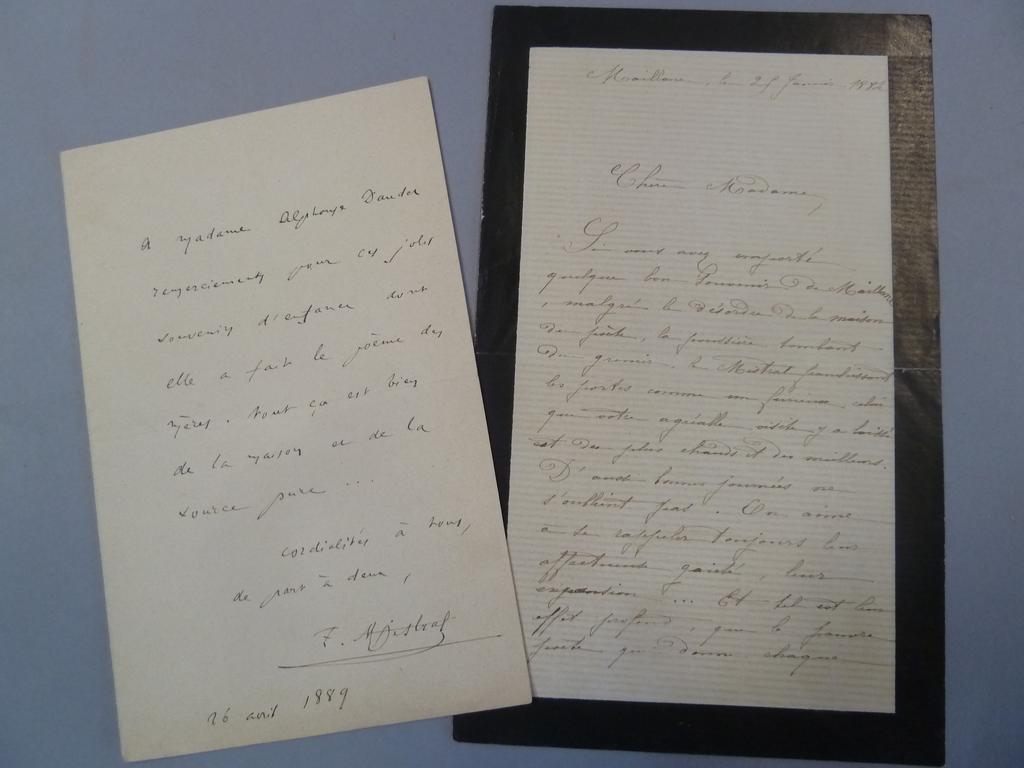 A Madame Alphonse Daudet
remerciements pour ces jolis
souvenirs d'enfance dont
elle a fait le poème des
mères. tout ça est bien
de la maison et de la
source pure ...
cordialités à tous,
de part à deux,
F. Mistral
26 avril 1889
Maillane, le 25 Janvier 188
Chère Madame,
Si vous avez emporté
quelque bon Souvenir de Maillane
, malgré le désordre de la maison
du poète, la poussière tombant
du grenier, le Mistral
les portes comme un furieux, celui
que votre agréable visite y a laissé
est des plus chauds et des meilleurs.
D'aussi bonnes journées ne
s'oublient pas. On aime
a se rappeler toujours leur
affectueuse gaieté, leur
expansion ... Et tel est leur
effet profond, que le pauvre
poète qui donne chaque